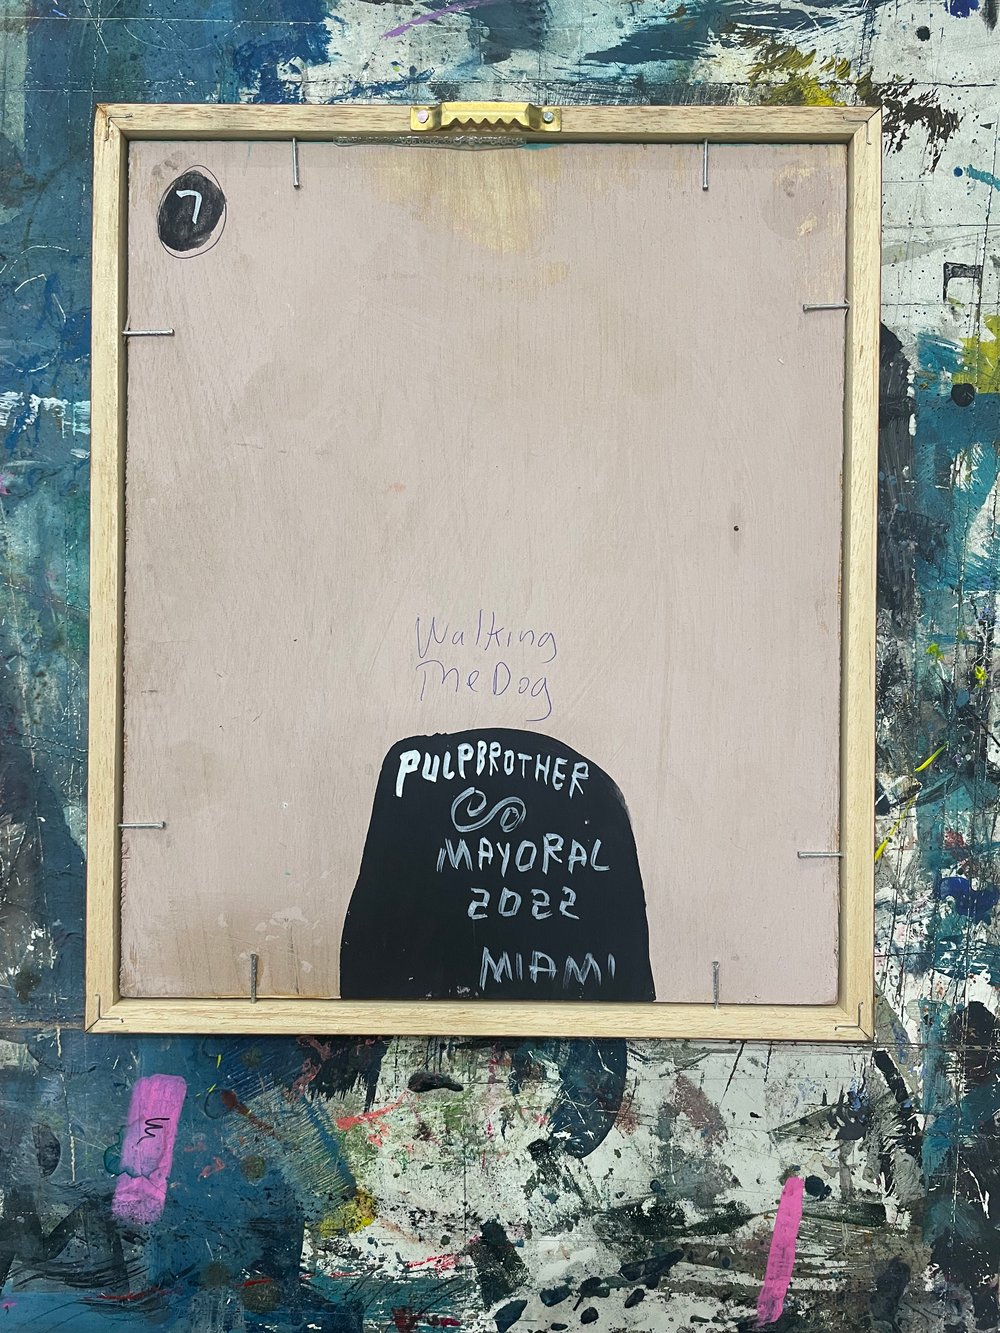 7
Walking
The Dog
PULPBROTHER
MAYORAL
2022
MIAMI